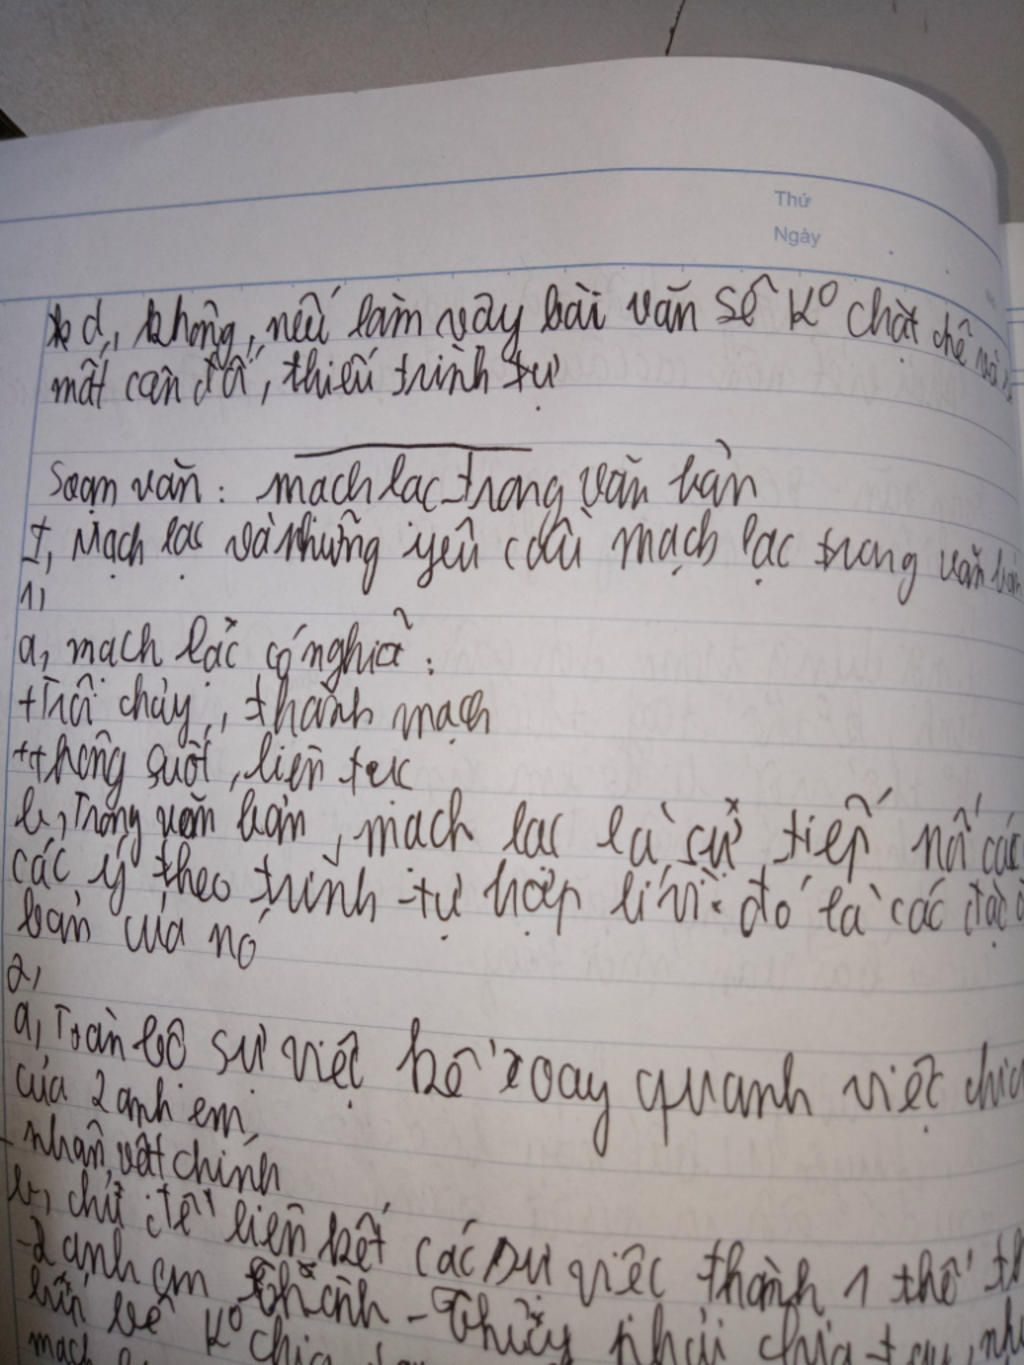 Thứ
Ngày
d, không, nếu làm vậy bài văn sẽ k° chặt chẽ và
mất cân đối, thiếu trình tự
Soạn văn: mạch lạc trong văn bản
I, Mạch lạc và những yêu cầu mạch lạc trong văn bản
1,
a, mạch lạc có nghĩa:
+ Trôi chảy, thành mạch
+ thông suốt, liên tục
b, Trong văn bản, mạch lạc là sự tiếp nối các
các ý theo trình tự hợp lí vì đó là các
bản của nó
2,
a, Toàn bộ sự việc kể xoay quanh việc chia
của 2 anh em
- nhân vật chính
b, chủ đề liên kết các sự việc thành 1 thể
- 2 anh em Thành - Thủy phải chia tay,
bê k° chia
mạch